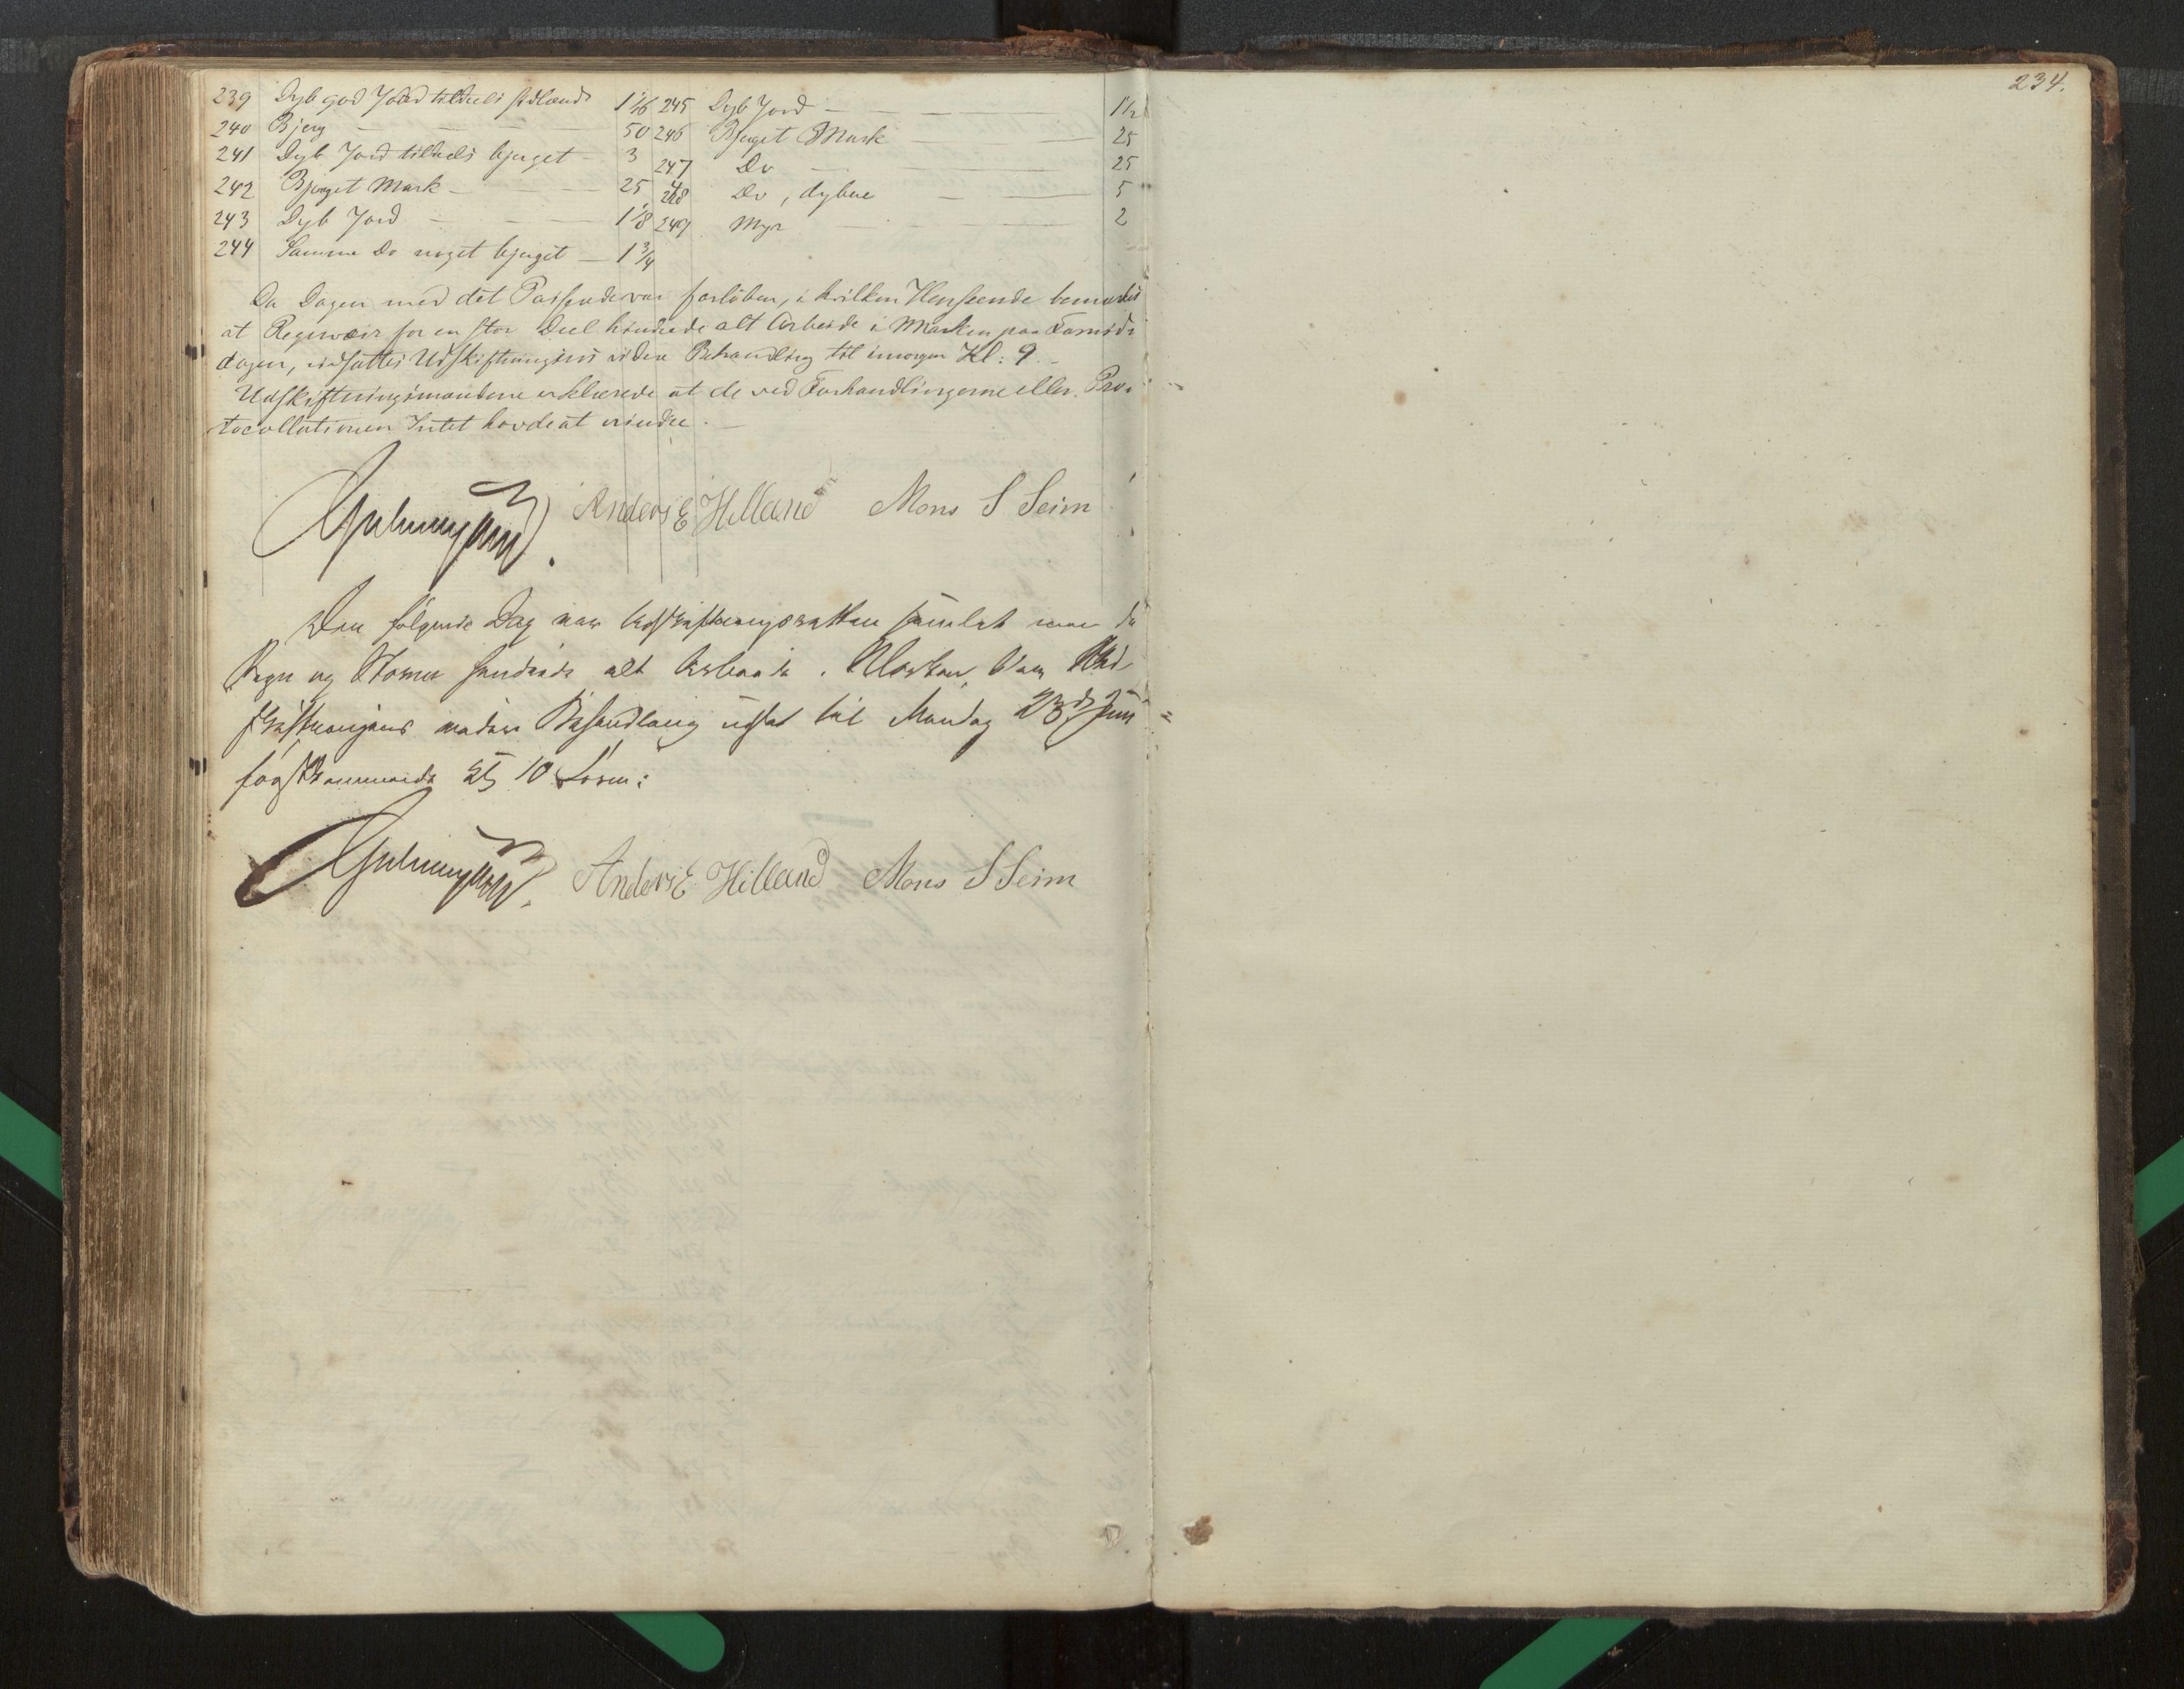 234.
239 Dyb god Jord tildeels sidlændt 1 1/16
240 Bjerg — — — 50
241 Dyb Jord tildeels bjerget — 3
242 Bjerget Mark — — 25
243 Dyb Jord — — — 1 1/8
244 Samme Do noget bjerget — 1 3/4
245 Dyb Jord — — — 1 1/2
246 Bjerget Mark — — 25
247 Do — — 25
248 Do, dybere — — 5
249 Myr — — — 2
Da Dagen med det Passerede var forløben, i hvilken Henseende bemærkes
at Regnveir for en stor Deel hindrede alt Arbeide i Marken paa Formid-
dagen, udsattes Udskiftningens videre Behandling til imorgen Kl: 9.
Udskiftningsmændene erklærede at de ved Forhandlingerne eller Pro-
tocollationen Intet havde at erindre.
Anders E Hilland Mons S Seim
Den følgende Dag var Udskiftningsretten samlet men da
Regn og Storm hindrede alt Arbeide i Marken, blev Ud-
skiftningens videre Behandling udsat til Mandag 23de Juni
førstkommende Kl 10 Form:
Anders E Hilland Mons S Seim